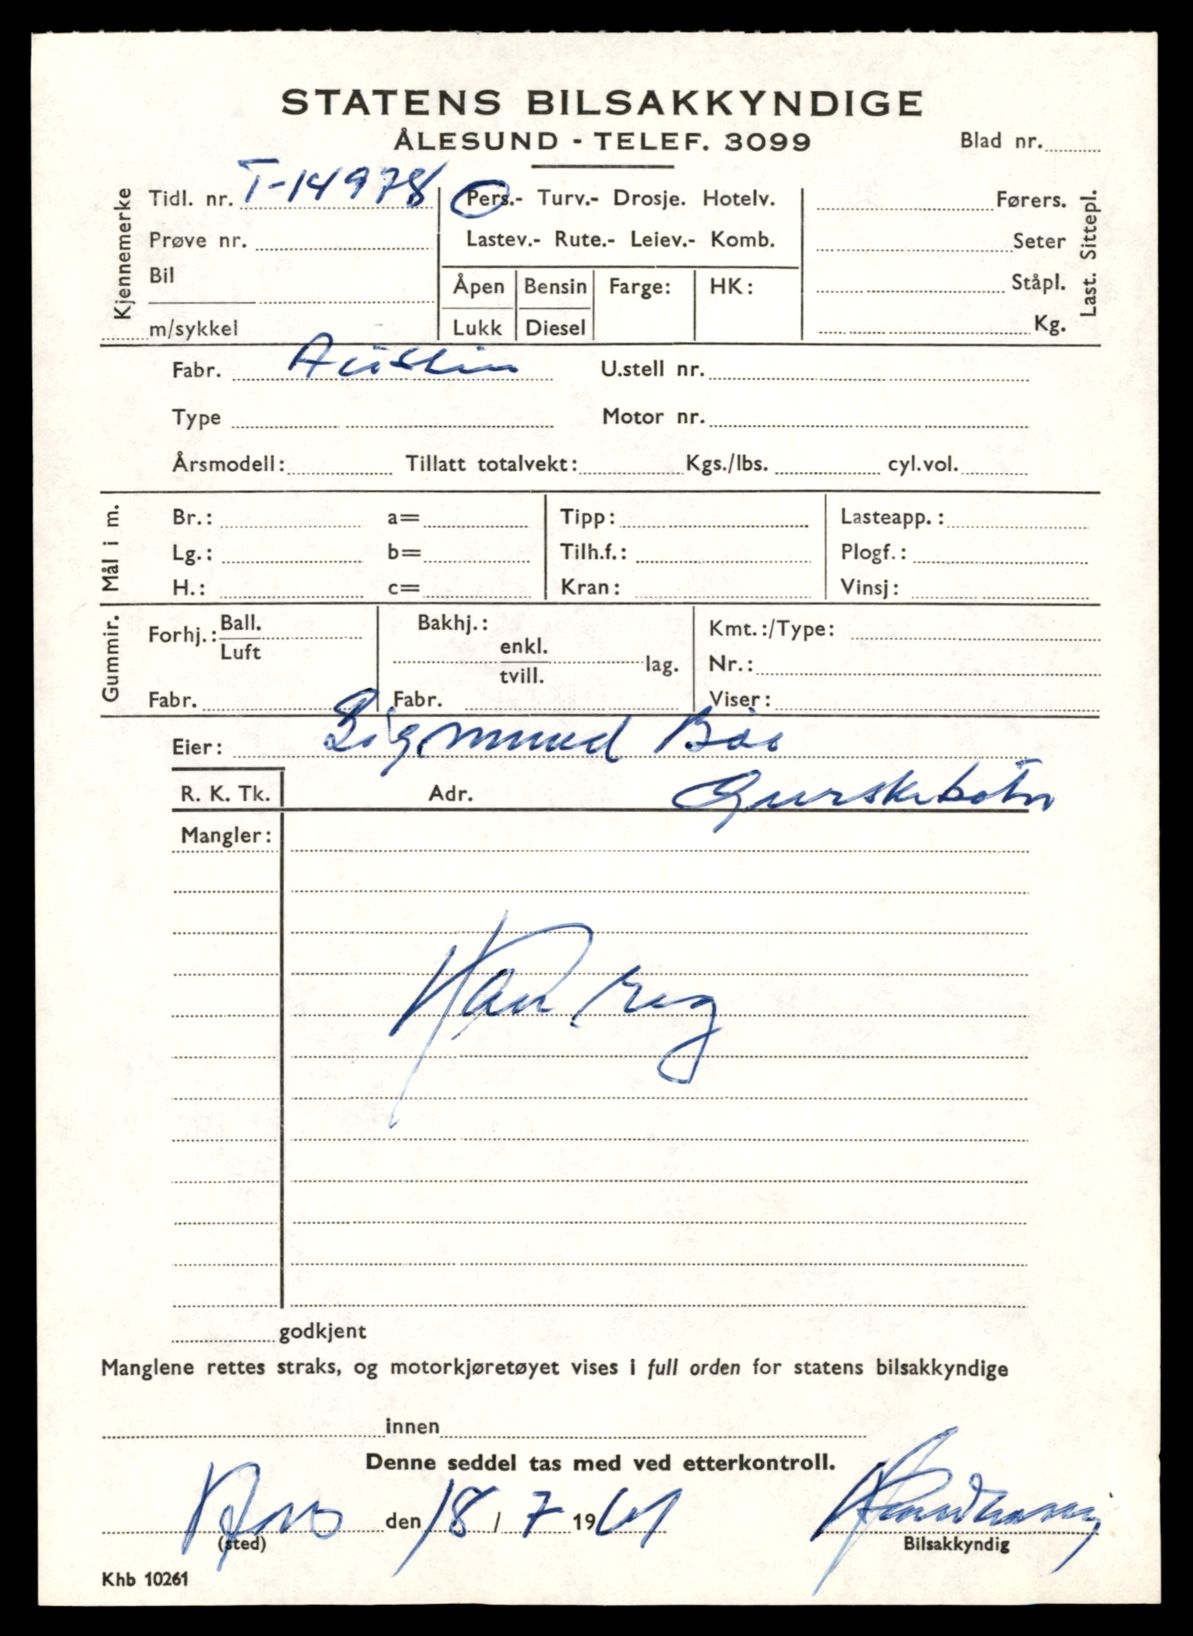 STATENS BILSAKKYNDIGE
ÅLESUND - TELEF. 3099
Blad nr.
Kjennemerke
Tidl. nr. T-14978
Prøve nr.
Bil
m/sykkel
Pers.- Turv.- Drosje. Hotelv.
Lastev.- Rute.- Leiev.- Komb.
Åpen Bensin Farge: HK:
Lukk Diesel
Førers.
Seter
Ståpl.
Kg.
Last. Sittepl.
Fabr. Austin U.stell nr.
Type Motor nr.
Årsmodell: Tillatt totalvekt: Kgs./lbs. cyl.vol.
Mål i m.
Br.: a= Tipp: Lasteapp.:
Lg.: b= Tilh.f.: Plogf.:
H.: c= Kran: Vinsj:
Gummir.
Forhj.: Ball. Luft
Fabr.
Bakhj.:
enkl.
tvill. lag.
Fabr.
Kmt.:/Type:
Nr.:
Viser:
Eier: Sigmund Bøe
R. K. Tk. Adr. Gurskebotn
Mangler:
Kan reg
godkjent
Manglene rettes straks, og motorkjøretøyet vises i full orden for statens bilsakkyndige
innen
Denne seddel tas med ved etterkontroll.
den 18/7 1961
(sted) Bilsakkyndig
Khb 10261